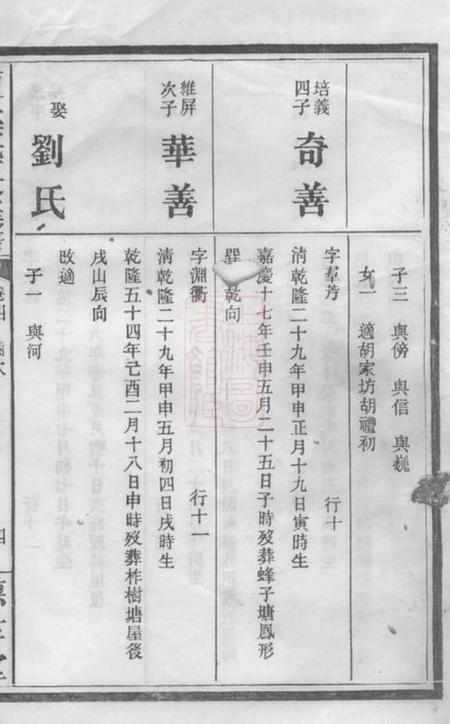 子三 與傍 與信 與巍
女一 適胡家坊胡禮初
培義
四子
奇善
字羣芳 行十
清乾隆二十九年甲申正月十九日寅時生
嘉慶十七年壬申五月二十五日子時歿葬蜂子塘鳳形
巽 乾向
維屏
次子
華善
字淵衢 行十一
清乾隆二十九年甲申五月初四日戌時生
乾隆五十四年己酉二月十八日申時歿葬柞樹塘屋後
戌山辰向
娶
劉氏
改適
子一 與河
卷四
四